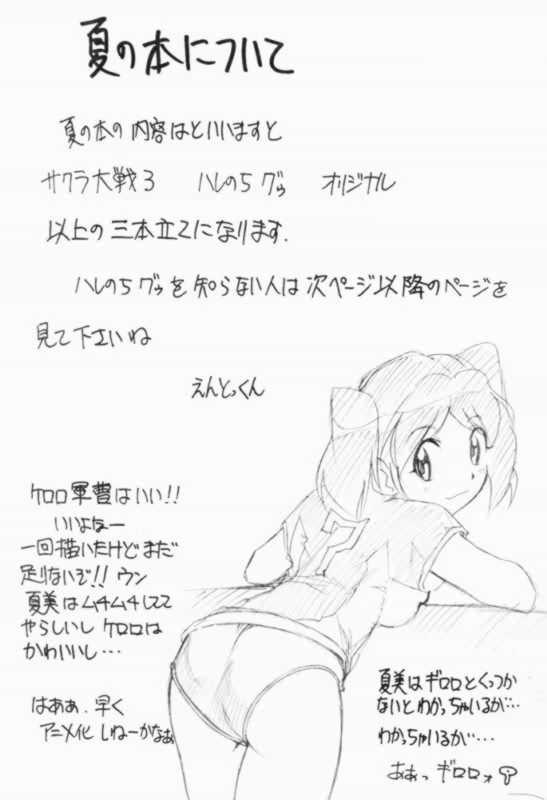 夏の本について
夏の本の内容はといいますと
サクラ大戦3 ハレのちグゥ オリジナル
以上の三本立てになります.
ハレのちグゥを知らない人は次ページ以降のページを
見て下さいね
えんとっくん
ケロロ軍曹はいい!!
いいよなー
一回描いたけどまだ
足りないぞ!! ウン
夏美はムチムチしてて
やらしいし ケロロは
かわいいし…
はぁぁ.早く
アニメ化しねーかなぁ
夏美はギロロとくっつか
ないとわかっちゃいるが…
わかっちゃいるが……
ああっ ギロロォ